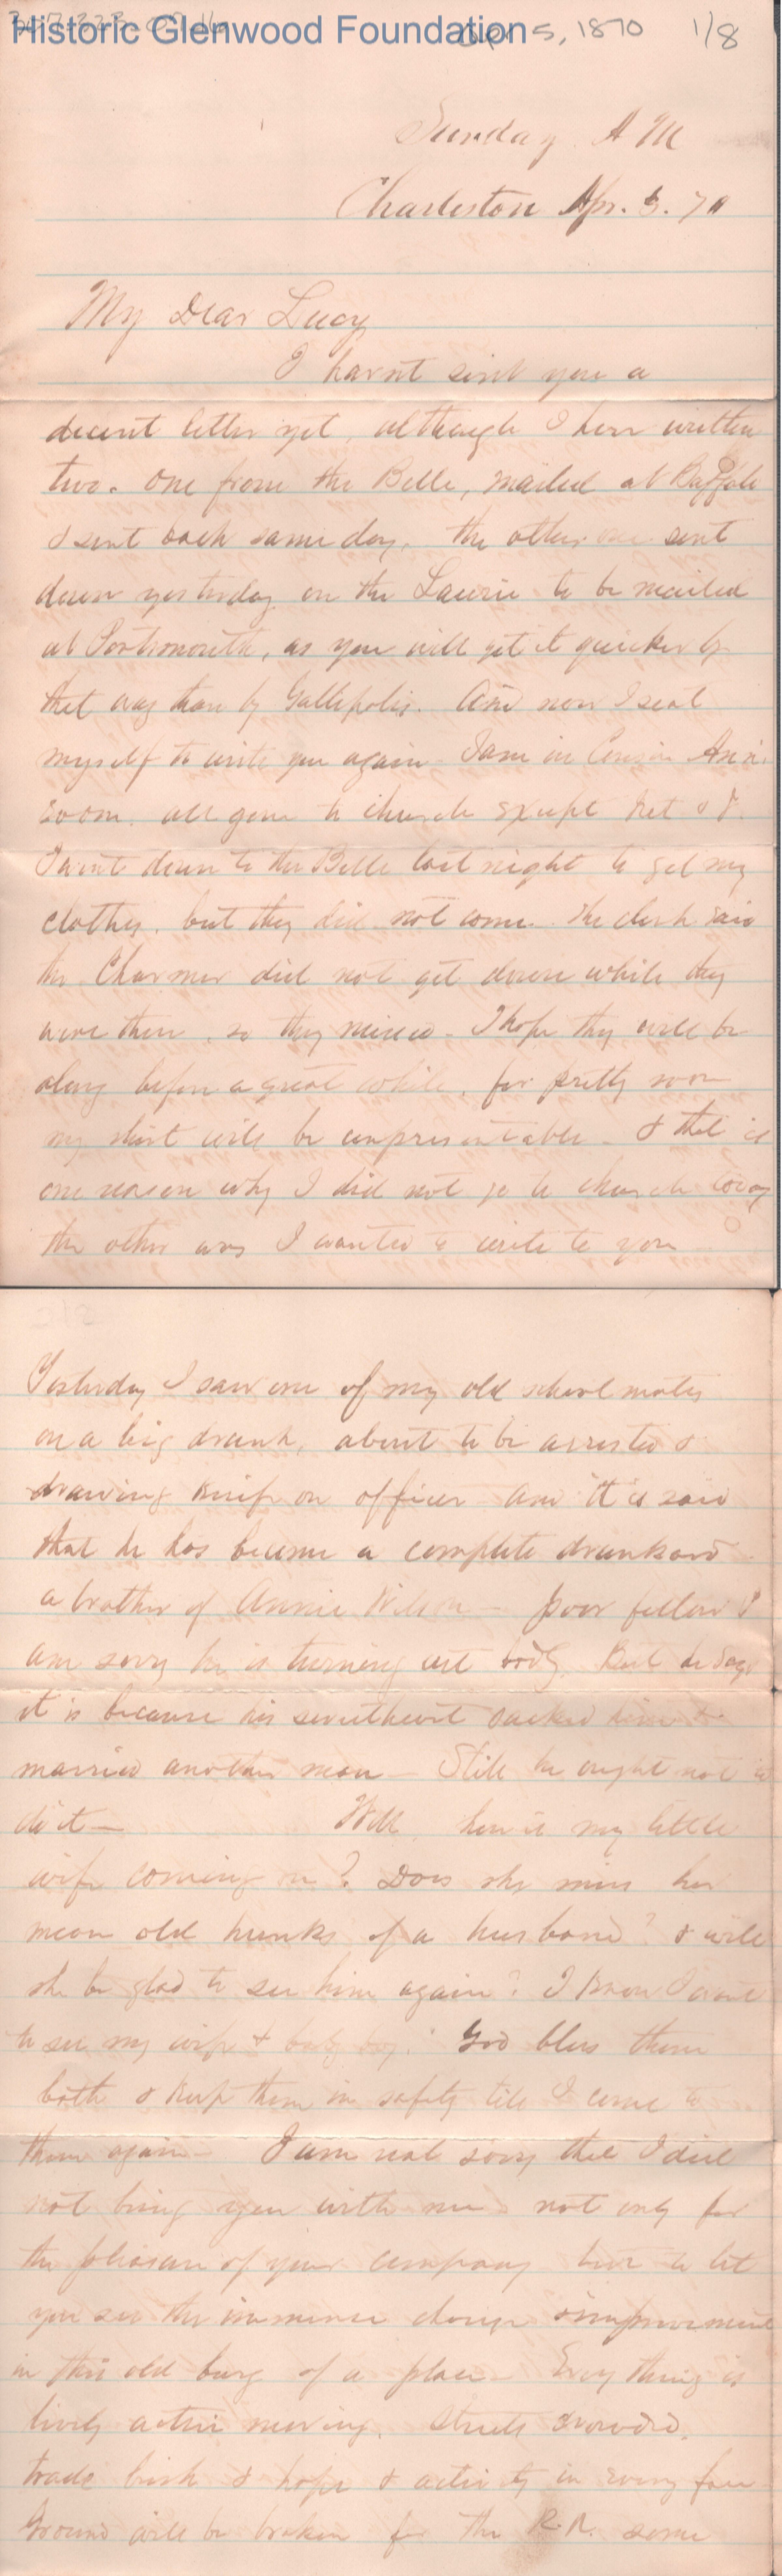 Historic Glenwood Foundation
Apr 5, 1870 1/8
Sunday A M
Charleston Apr. 3. 70
My Dear Lucy
I havnt sent you a
decent letter yet, although I have written
two. One from the Belle, mailed at Buffalo
& sent back same day, the other one sent
down yesterday on the Laurie to be mailed
at Portsmouth, as you will get it quicker by
that way than by Gallipolis. And now I seat
myself to write you again I am in Cousin Ann's
room. all gone to church except Net & I.
I went down to the Belle last night to get my
clothes, but they did not come. The clerk said
the Charmer did not get down while they
were there, so they missed. I hope they will be
along before a great while, for pretty soon
my shirt will be unpresentable - & that is
one reason why I did not go to church today
the other was I wanted to write to you -
Yesterday I saw one of my old school mates
on a big drunk, about to be arrested &
drawing knife on officer and it is said
that he has become a complete drunkard
a brother of Annie Wilson - poor fellow I
am sorry he is turning out badly. But he says
it is because his sweetheart backed down &
married another man - Still he ought not to
do it - Well, how is my little
wife coming on? Does she miss her
mean old hunks of a husband? & will
she be glad to see him again? I know I want
to see my wife & baby boy. God bless them
both & keep them in safety till I come to
them again - I am real sorry that I did
not bring you with me not only for
the pleasure of your company but to let
you see the immense change & improvement
in this old burg of a place - Every thing is
lively active moving. Streets crowded,
trade brisk & hope & activity in every face
Ground will be broken for the R.R. some